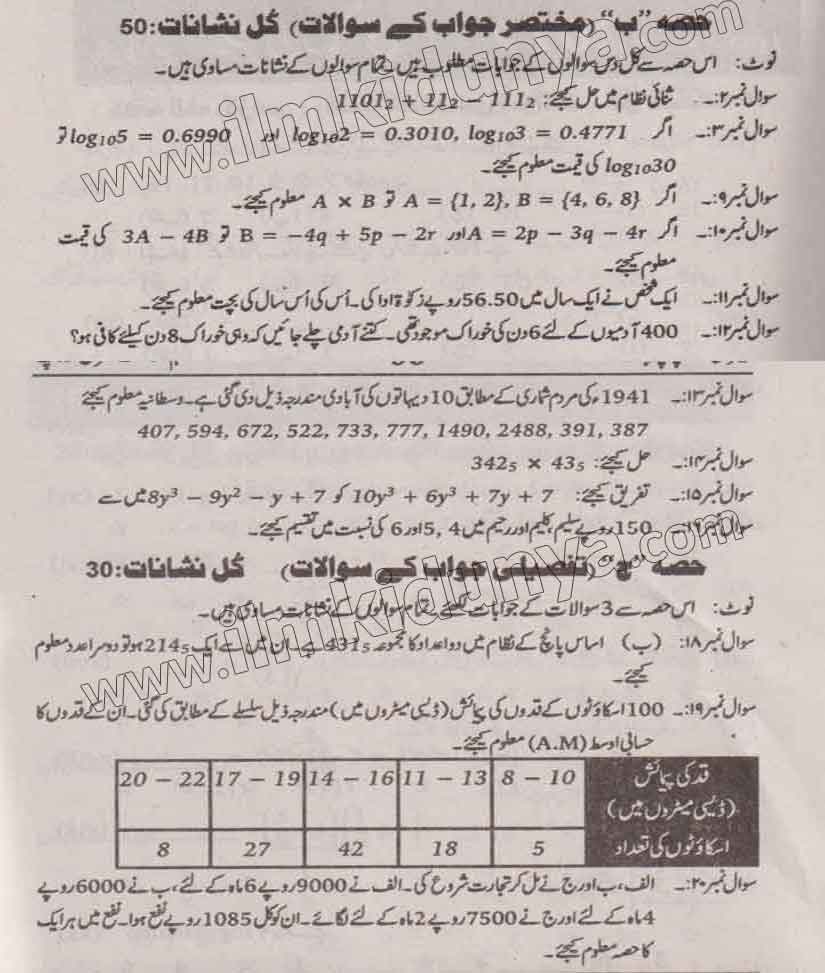 حصہ "ب" (مختصر جواب کے سوالات) کُل نشانات: 50
نوٹ: اس حصہ سے کُل دس سوالوں کے جوابات مطلوب ہیں۔ تمام سوالوں کے نشانات مساوی ہیں۔
سوال نمبر۲:۔ ثنائی نظام میں حل کیجئے: 1101₂ + 11₂ − 111₂
سوال نمبر۳:۔ اگر log₁₀2 = 0.3010, log₁₀3 = 0.4771 اور log₁₀5 = 0.6990 تو
log₁₀30 کی قیمت معلوم کیجئے۔
سوال نمبر۹:۔ اگر A = {1, 2}, B = {4, 6, 8} تو A × B معلوم کیجئے۔
سوال نمبر۱۰:۔ اگر A = 2p − 3q − 4r اور B = −4q + 5p − 2r تو 3A − 4B کی قیمت
معلوم کیجئے۔
سوال نمبر۱۱:۔ ایک شخص نے ایک سال میں 56.50 روپے زکوٰۃ ادا کی۔ اُس کی اُس سال کی بچت معلوم کیجئے۔
سوال نمبر۱۲:۔ 400 آدمیوں کے لئے 6 دن کی خوراک موجود تھی۔ کتنے آدمی چلے جائیں کہ وہی خوراک 8 دن کیلئے کافی ہو؟
سوال نمبر۱۳:۔ 1941ء کی مردم شماری کے مطابق 10 دیہاتوں کی آبادی مندرجہ ذیل دی گئی ہے۔ وسطانیہ معلوم کیجئے
407, 594, 672, 522, 733, 777, 1490, 2488, 391, 387
سوال نمبر۱۴:۔ حل کیجئے: 342₅ × 43₅
سوال نمبر۱۵:۔ تفریق کیجئے: 10y³ + 6y³ + 7y + 7 کو 8y³ − 9y² − y + 7 میں سے
سوال نمبر۱۶:۔ 150 روپے سلیم، کلیم اور رحیم میں 4, 5 اور 6 کی نسبت میں تقسیم کیجئے۔
حصہ "ج" (تفصیلی جواب کے سوالات) کُل نشانات: 30
نوٹ: اس حصہ سے 3 سوالات کے جوابات لکھیئے۔ تمام سوالوں کے نشانات مساوی ہیں۔
سوال نمبر۱۸: (ب) اساس پانچ کے نظام میں دو اعداد کا مجموعہ 431₅ ہے۔ ان میں سے ایک 214₅ ہو تو دوسرا عدد معلوم
کیجئے۔
سوال نمبر۱۹:۔ 100 اسکاؤٹوں کے قدوں کی پیمائش (ڈیسی میٹروں میں) مندرجہ ذیل سلسلے کے مطابق کی گئی۔ ان کے قدوں کا
حسابی اوسط (A.M) معلوم کیجئے۔
قد کی پیمائش (ڈیسی میٹروں میں) 8 − 10 11 − 13 14 − 16 17 − 19 20 − 22
اسکاؤٹوں کی تعداد 5 18 42 27 8
سوال نمبر۲۰:۔ الف، ب اور ج نے مل کر تجارت شروع کی۔ الف نے 9000 روپے 6 ماہ کے لئے، ب نے 6000 روپے
4 ماہ کے لئے اور ج نے 7500 روپے 2 ماہ کے لئے لگائے۔ ان کو کل 1085 روپے نفع ہوا۔ نفع میں ہر ایک
کا حصہ معلوم کیجئے۔
www.ilmkidunya.com
www.ilmkidunya.com